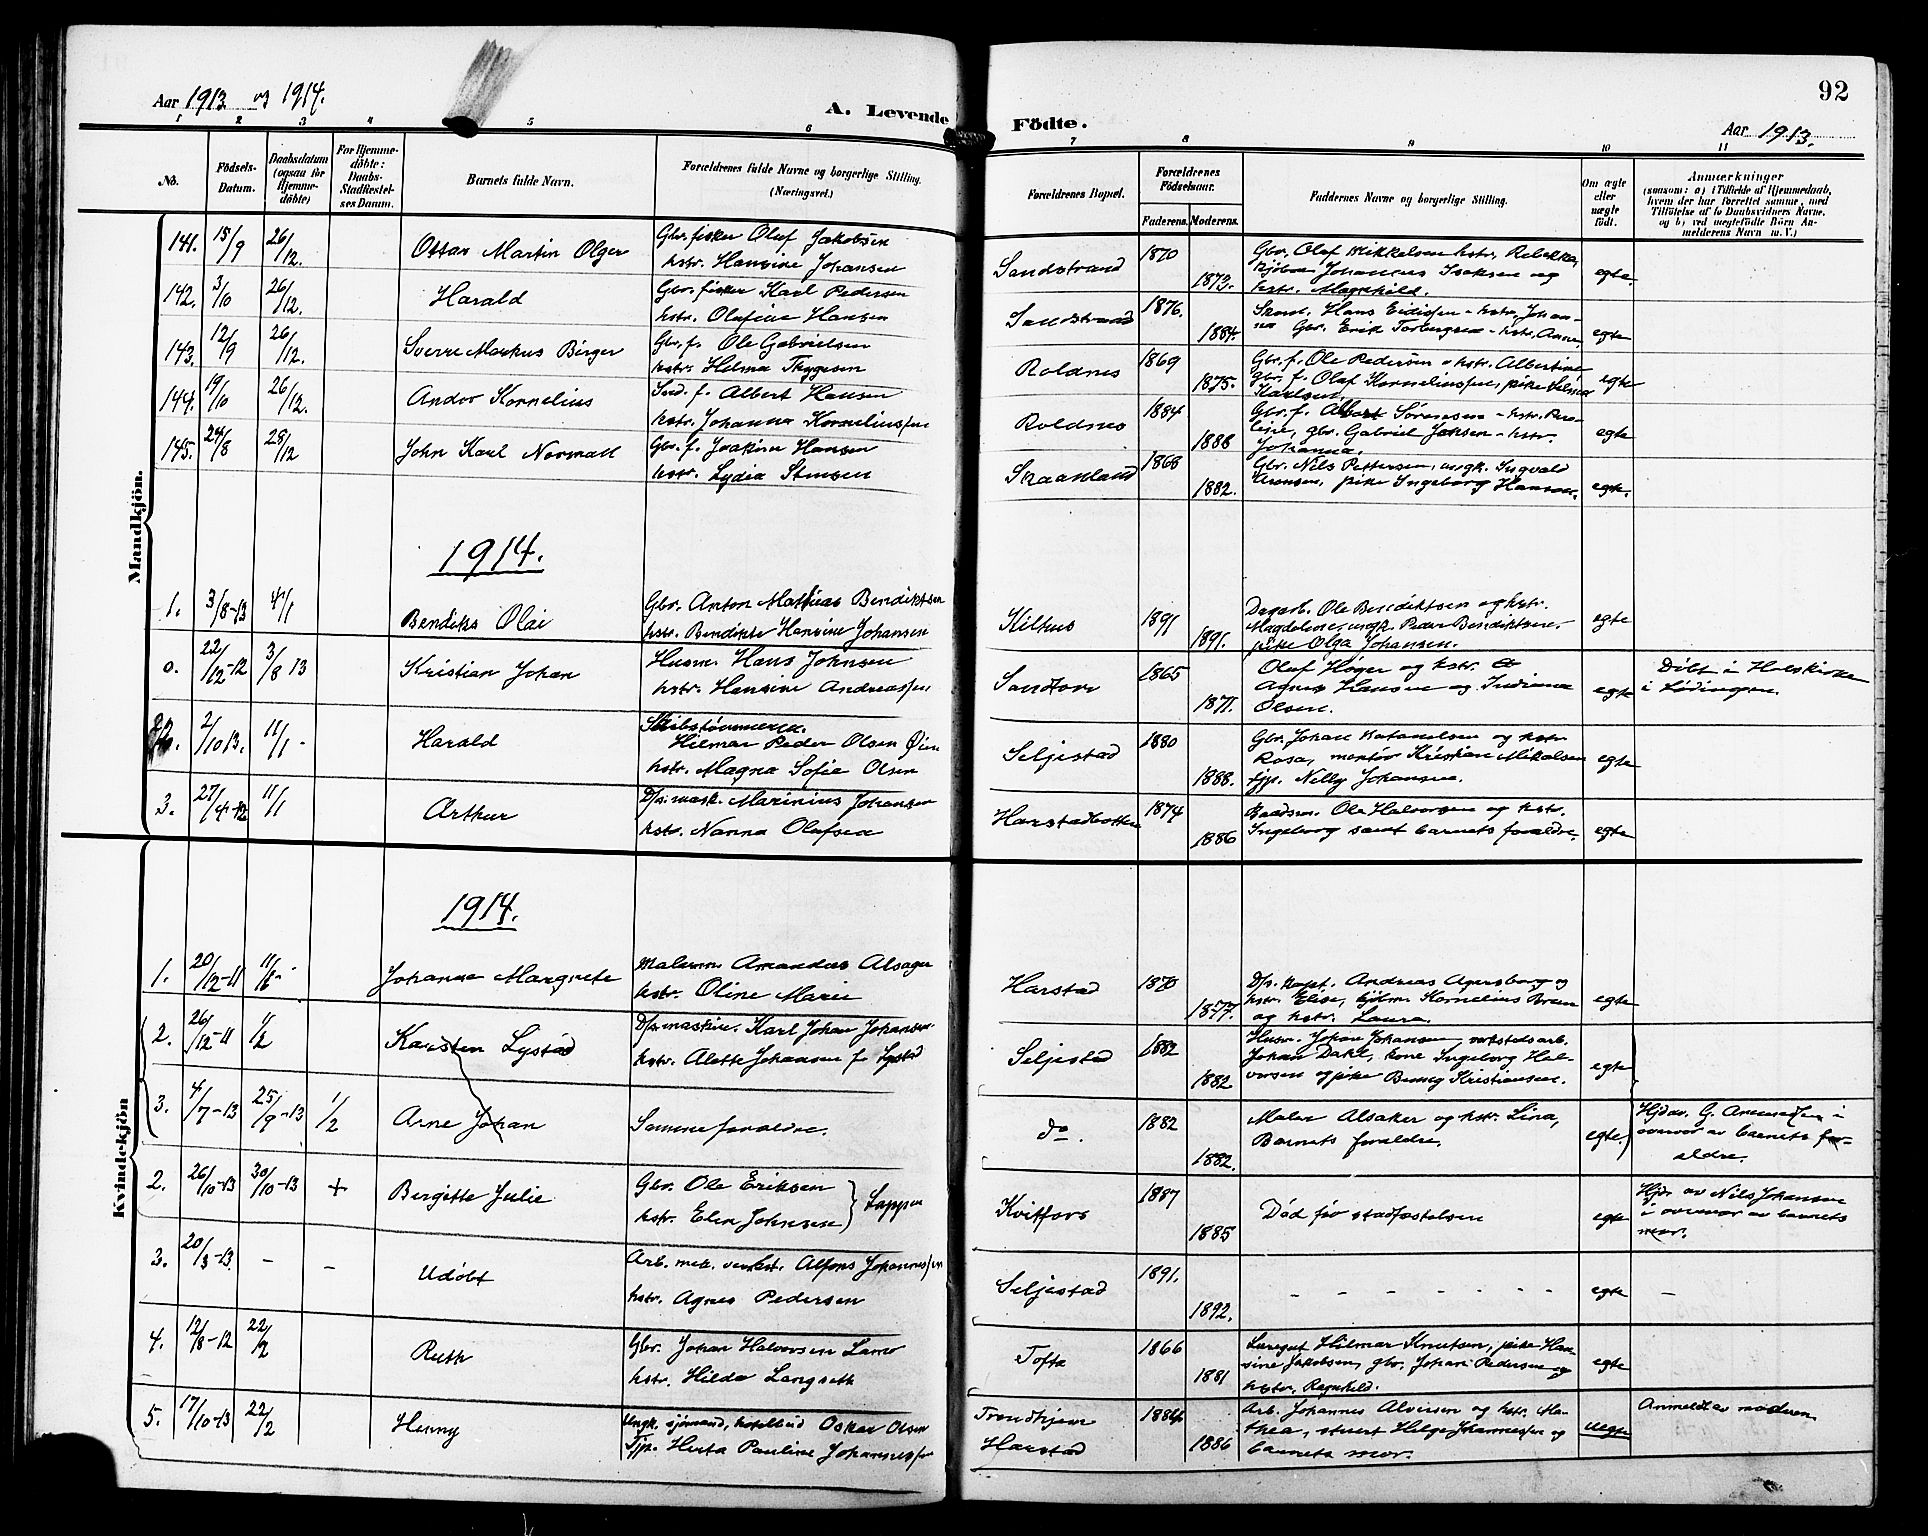 Aar 1913 og 1914.
A. Levende Fødte.
92
Aar 1913.
1 2 3 4 5 6 7 8 9 10 11
No.
Fødsels-Datum.
Daabsdatum (ogsaa for Hjemmedøbte)
For Hjemmedøbte: Daabs-Stadfestelses Datum.
Barnets fulde Navn.
Forældrenes fulde Navne og borgerlige Stilling. (Næringsvei.)
Forældrenes Bopæl.
Forældrenes Fødselsaar.
Faderens. Moderens.
Faddernes Navne og borgerlige Stilling.
Om ægte eller uægte født.
Anmærkninger
(saasom: a) i Tilfælde af Hjemmedaab, hvem der har forrettet samme, med Tilføielse af to Daabsvidners Navne, og b) ved uægtefødte Børn Anmelderens Navn m. V.)
Mandkjön.
141. 15/9 26/12. Ottar Martin Olger
Gbr. fisker Oluf Jakobsen
hstr. Hansine Johansen
Sandstrand 1870 1873.
Gbr. Olaf Mikkelsen hstr. Rebekka,
Johannes Isaksen og
hstr. Magnhild.
egte.
142. 3/10 26/12. Harald
Gbr. fisker Karl Pedersen
hstr. Olufine Hansen
Sandstrand 1876. 1884.
Hans Eidissen - hstr. Johan-
na Gbr. Erik Torbergsen - hstr. Anna,
egte
143. 12/9 26/12. Sverre Markus Birger
Gbr. f. Ole Gabrielsen
hstr. Helma Thygesen
Roldnes 1869 1875.
Gbr. f. Ole Pedersen - hstr. Albertine,
gbr. f. Olaf Korneliussen, pike Selma
Karlsen.
egte
144. 19/10 26/12. Andor Kornelius
Ind. f. Albert Hansen
hstr. Johanna Korneliussen
Roldnes 1884 1888
Gbr. f. Albert Sørensen - hstr. Pau-
line, gbr. Gabriel Jensen - hstr.
Johanna.
egte
145. 24/8 28/12 John Karl Normall
Gbr. f. Joakim Hansen
hstr. Lydia Stensen
Skaanland 1868 1882.
Gbr. Nils Pettersen, ungk. Ingvald
Aronsen, pike Ingeborg Hansen.
egte.
1914.
1. 3/8-13 4/1 Bendiks Olai
Gbr. Anton Mathias Bendiktsen
hstr. Bendikte Hansine Johansen
Kilhus 1891 1891.
Dagarb. Ole Benediktsen og hstr.
Magdelene, ungk. Peder Bendiktsen,
pike Olga Johansen.
egte
o. 22/12-12 3/8 13 Kristian Johan
Husm. Hans Johnsen
hstr. Hansine Andreassen
Sandtorv 1865 1871.
Oluf Høger og hstr.
Agnes Hansen og Indiana
Olsen.
egte
Döbt i Holskirke
i Lødingen.
2. 2/10 13. 11/1 - Harald
Skibstømmerm.
Hilmar Peder Olsen Øien
hstr. Magna Sofie Olsen
Seljestad 1880 1888.
Gbr. Johan Natanelsen og hstr
Rosa, montør Kristian Mikalsen
tjp. Nelly Johansen.
egte
3. 27/4-12 11/1 Arthur
D/s. mask. Marinius Johansen
hstr. Nanna Olafsen
Harstadbotten 1874 1886
Baadsm. Ole Halvorsen og hstr.
Ingeborg samt barnets forældre.
egte
Kvindekjön
1914.
1. 20/12-11 11/1 - Johanna Margrete
Malerm. Amandus Alsager
hstr. Oline Marie
Harstad 1870 1877.
D/s. kapt. Andreas Agersborg og
hstr. Elise, kjöbm. Kornelius Bram
og hstr. Laura.
egte
2. 26/12-11 1/2 Karsten Lystad
D/s. maskin. Karl Johan Johansen
hstr. Alette Johansen f. Lystad
Seljestad 1882 1882
Husm. Johan Johansen, verkstedsarb.
Johan Dahl, kone Ingeborg Hal-
vorsen og pike Benny Kristiansen.
egte
3. 4/7-13 25/9-13 1/2 Arne Johan
Samme forældre.
do. 1882 1882.
Maler Alsaker og hstr. Lina,
Barnets forældre.
egte
Hjdøv. G. Amundsen i
overvær av barnets for-
ældre.
2. 26/10-13 30/10-13 + Bergitte Julie
Gbr. Ole Eriksen
hstr. Elen Johnsen } Lapper
Kvitfors 1887 1885
Död før stadfæstelsen
egte
Hjd. av Nils Johansen
i overvær av barnets
mor.
3. 20/3-13. - - Udöbt
Arb. mek. verkst. Alfons Johannessen
hstr. Agnes Pedersen
Seljestad 1891. 1892.
- - - - - - -
egte -
4. 12/8-12 22/2 Ruth
Gbr. Johan Halvorsen
hstr. Hilda Langseth
Tofta 1866 1881
Hilmar Knutsen, pike Han-
sine Jakobsen, gbr. Johan Pedersen og
hstr. Ragnhild.
egte
5. 17/10-13 22/2 Henny
Ungk. sjömand, hotelbud Oskar Olsen
Tjp. Herta Pauline Johannessen
Trondhjem
Harstad 1884 1886
Arb. Johannes Alversen og hstr. Ma-
thea, stuert Helge Johannessen og
barnets mor.
uegte
Anmeldt av moderen.